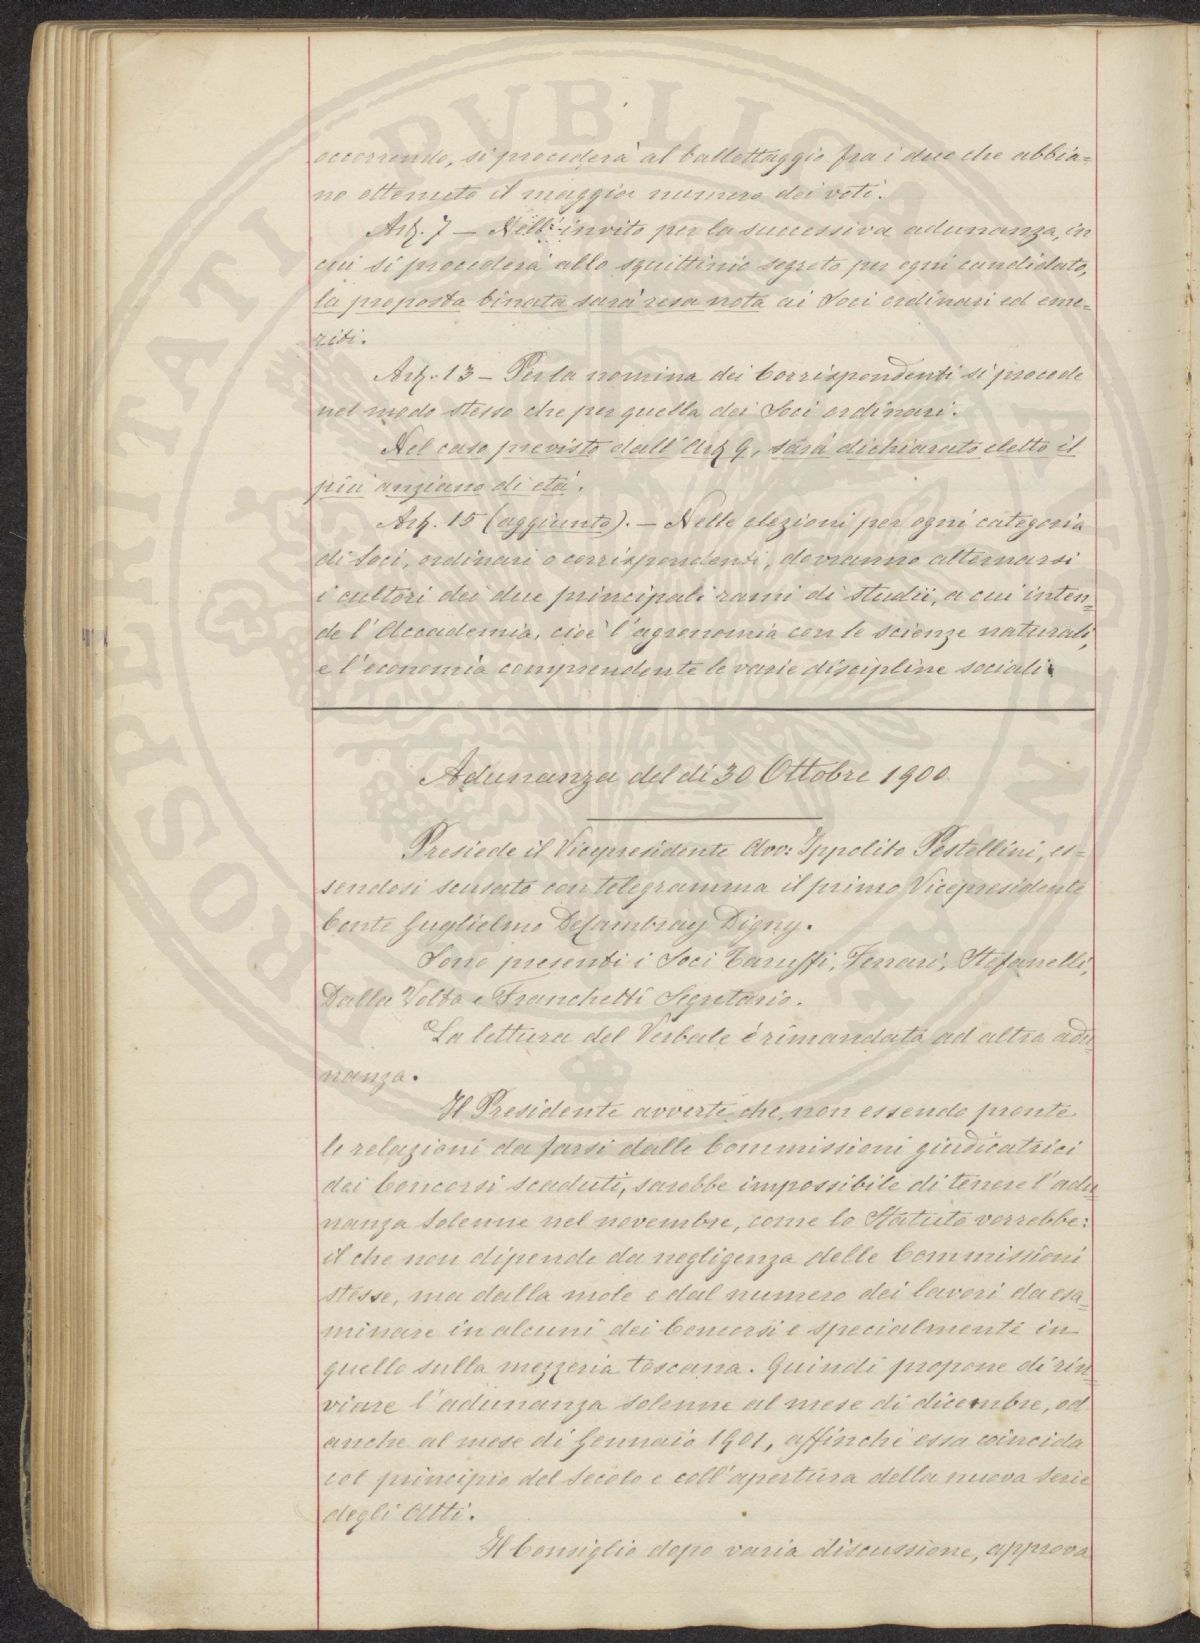 occorrendo, si procederà al ballottaggio fra i due che abbia=
no ottenuto il maggior numero dei voti.
Art. 7 — Nell'invito per la successiva adunanza, in
cui si procederà allo squittinio segreto per ogni candidato,
la proposta binata sarà resa nota ai Soci ordinari ed eme=
riti.
Art. 13 — Per la nomina dei Corrispondenti si procede
nel modo stesso che per quella dei Soci ordinari.
Nel caso previsto dall'Art 9, sarà dichiarato eletto il
più anziano di età.
Art. 15 (aggiunto). — Nelle elezioni per ogni categoria
di Soci, ordinari o corrispondenti, dovranno alternarsi
i cultori dei due principali rami di studii, a cui inten=
de l'Accademia, cioè l'agronomia con le scienze naturali,
e l'economia comprendente le varie discipline sociali.
Adunanza del di 30 Ottobre 1900
Presiede il Vicepresidente Avv: Ippolito Pestellini, es=
sendosi scusato con telegramma il primo Vicepresidente
Conte Guglielmo DeCambray Digny.
Sono presenti i Soci Taruffi, Ferrari, Stefanelli,
Dalla Volta e Franchetti Segretario.
La lettura del Verbale è rimandata ad altra adu=
nanza.
Il Presidente avverte che, non essendo pronte
le relazioni da farsi dalle Commissioni giudicatrici
dei Concorsi scaduti, sarebbe impossibile di tenere l'adu=
nanza solenne nel novembre, come lo Statuto vorrebbe:
il che non dipende da negligenza delle Commissioni
stesse, ma dalla mole e dal numero dei lavori da esa=
minare in alcuni dei Concorsi e specialmente in
quello sulla mezzeria toscana. Quindi propone di rin=
viare l'adunanza solenne al mese di dicembre, od
anche al mese di Gennaio 1901, affinché essa coincida
col principio del Secolo e coll'apertura della nuova serie
degli Atti.
Il Consiglio dopo varia discussione, approva
PROSPERITATI PVBLICAE AVGENDAE